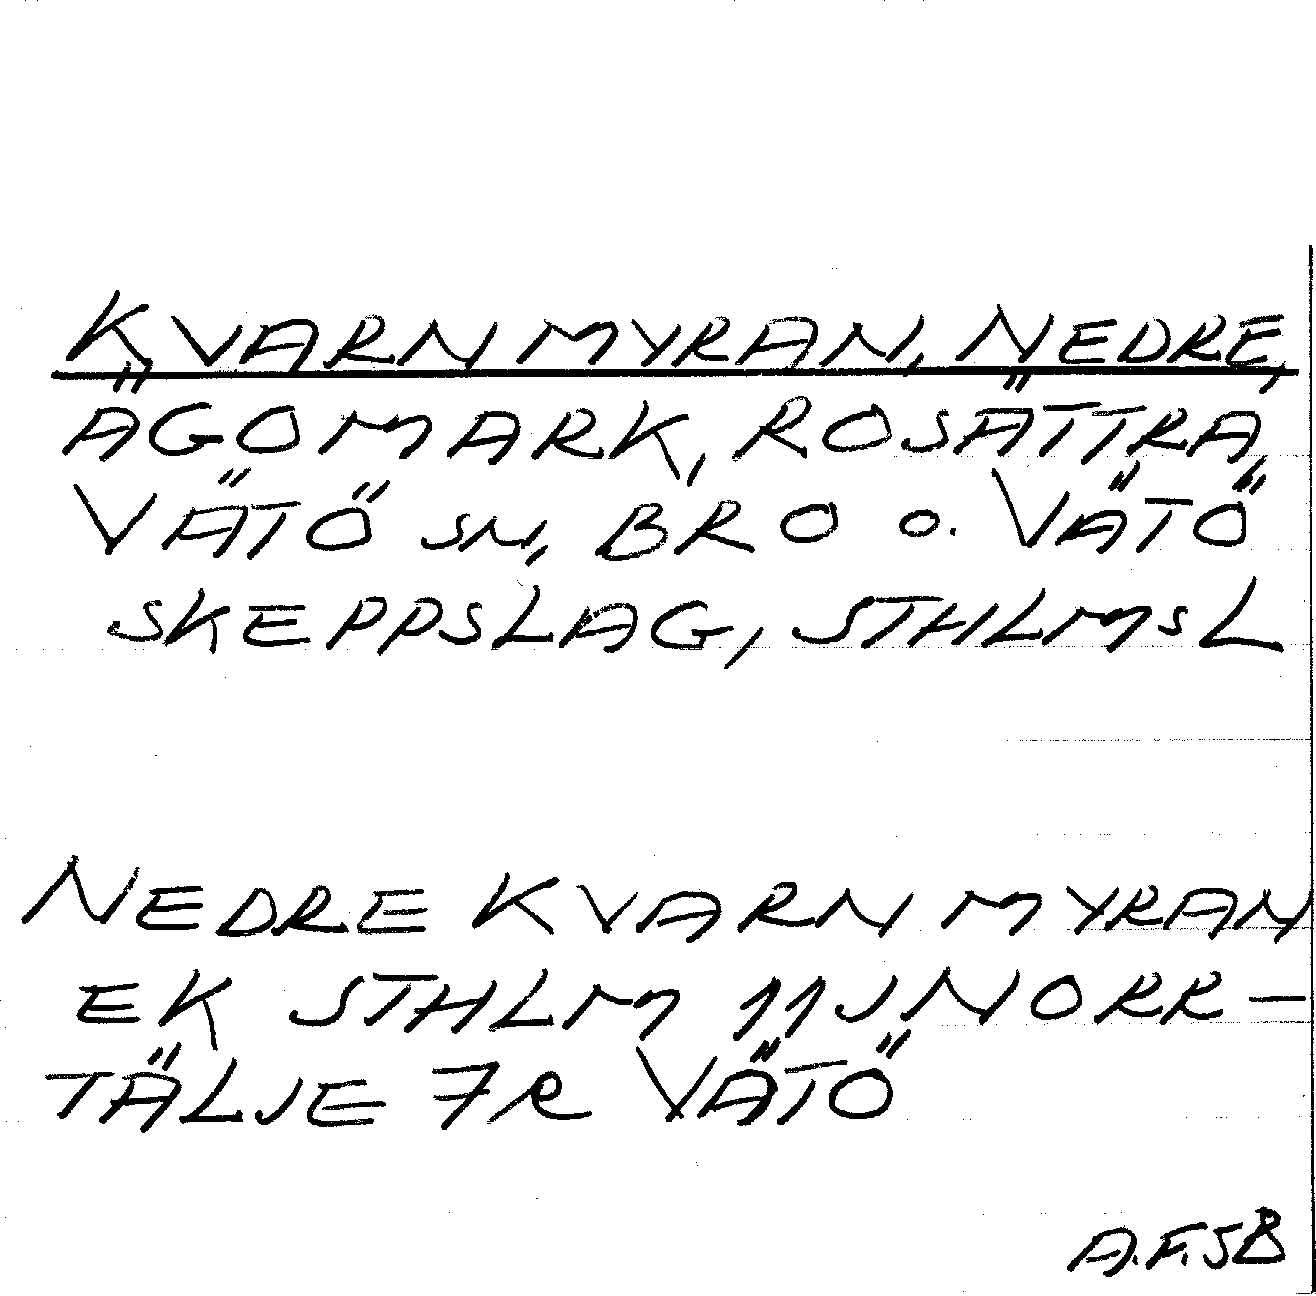 KVARNMYRAN, NEDRE,
ÄGOMARK, ROSÄTTRA,
VÄTÖ SN, BRO O. VÄTÖ
SKEPPSLAG, STHLMSL
NEDRE KVARNMYRAN
EK STHLM 11J NORR-
TÄLJE 7R VÄTÖ
A.F.SB